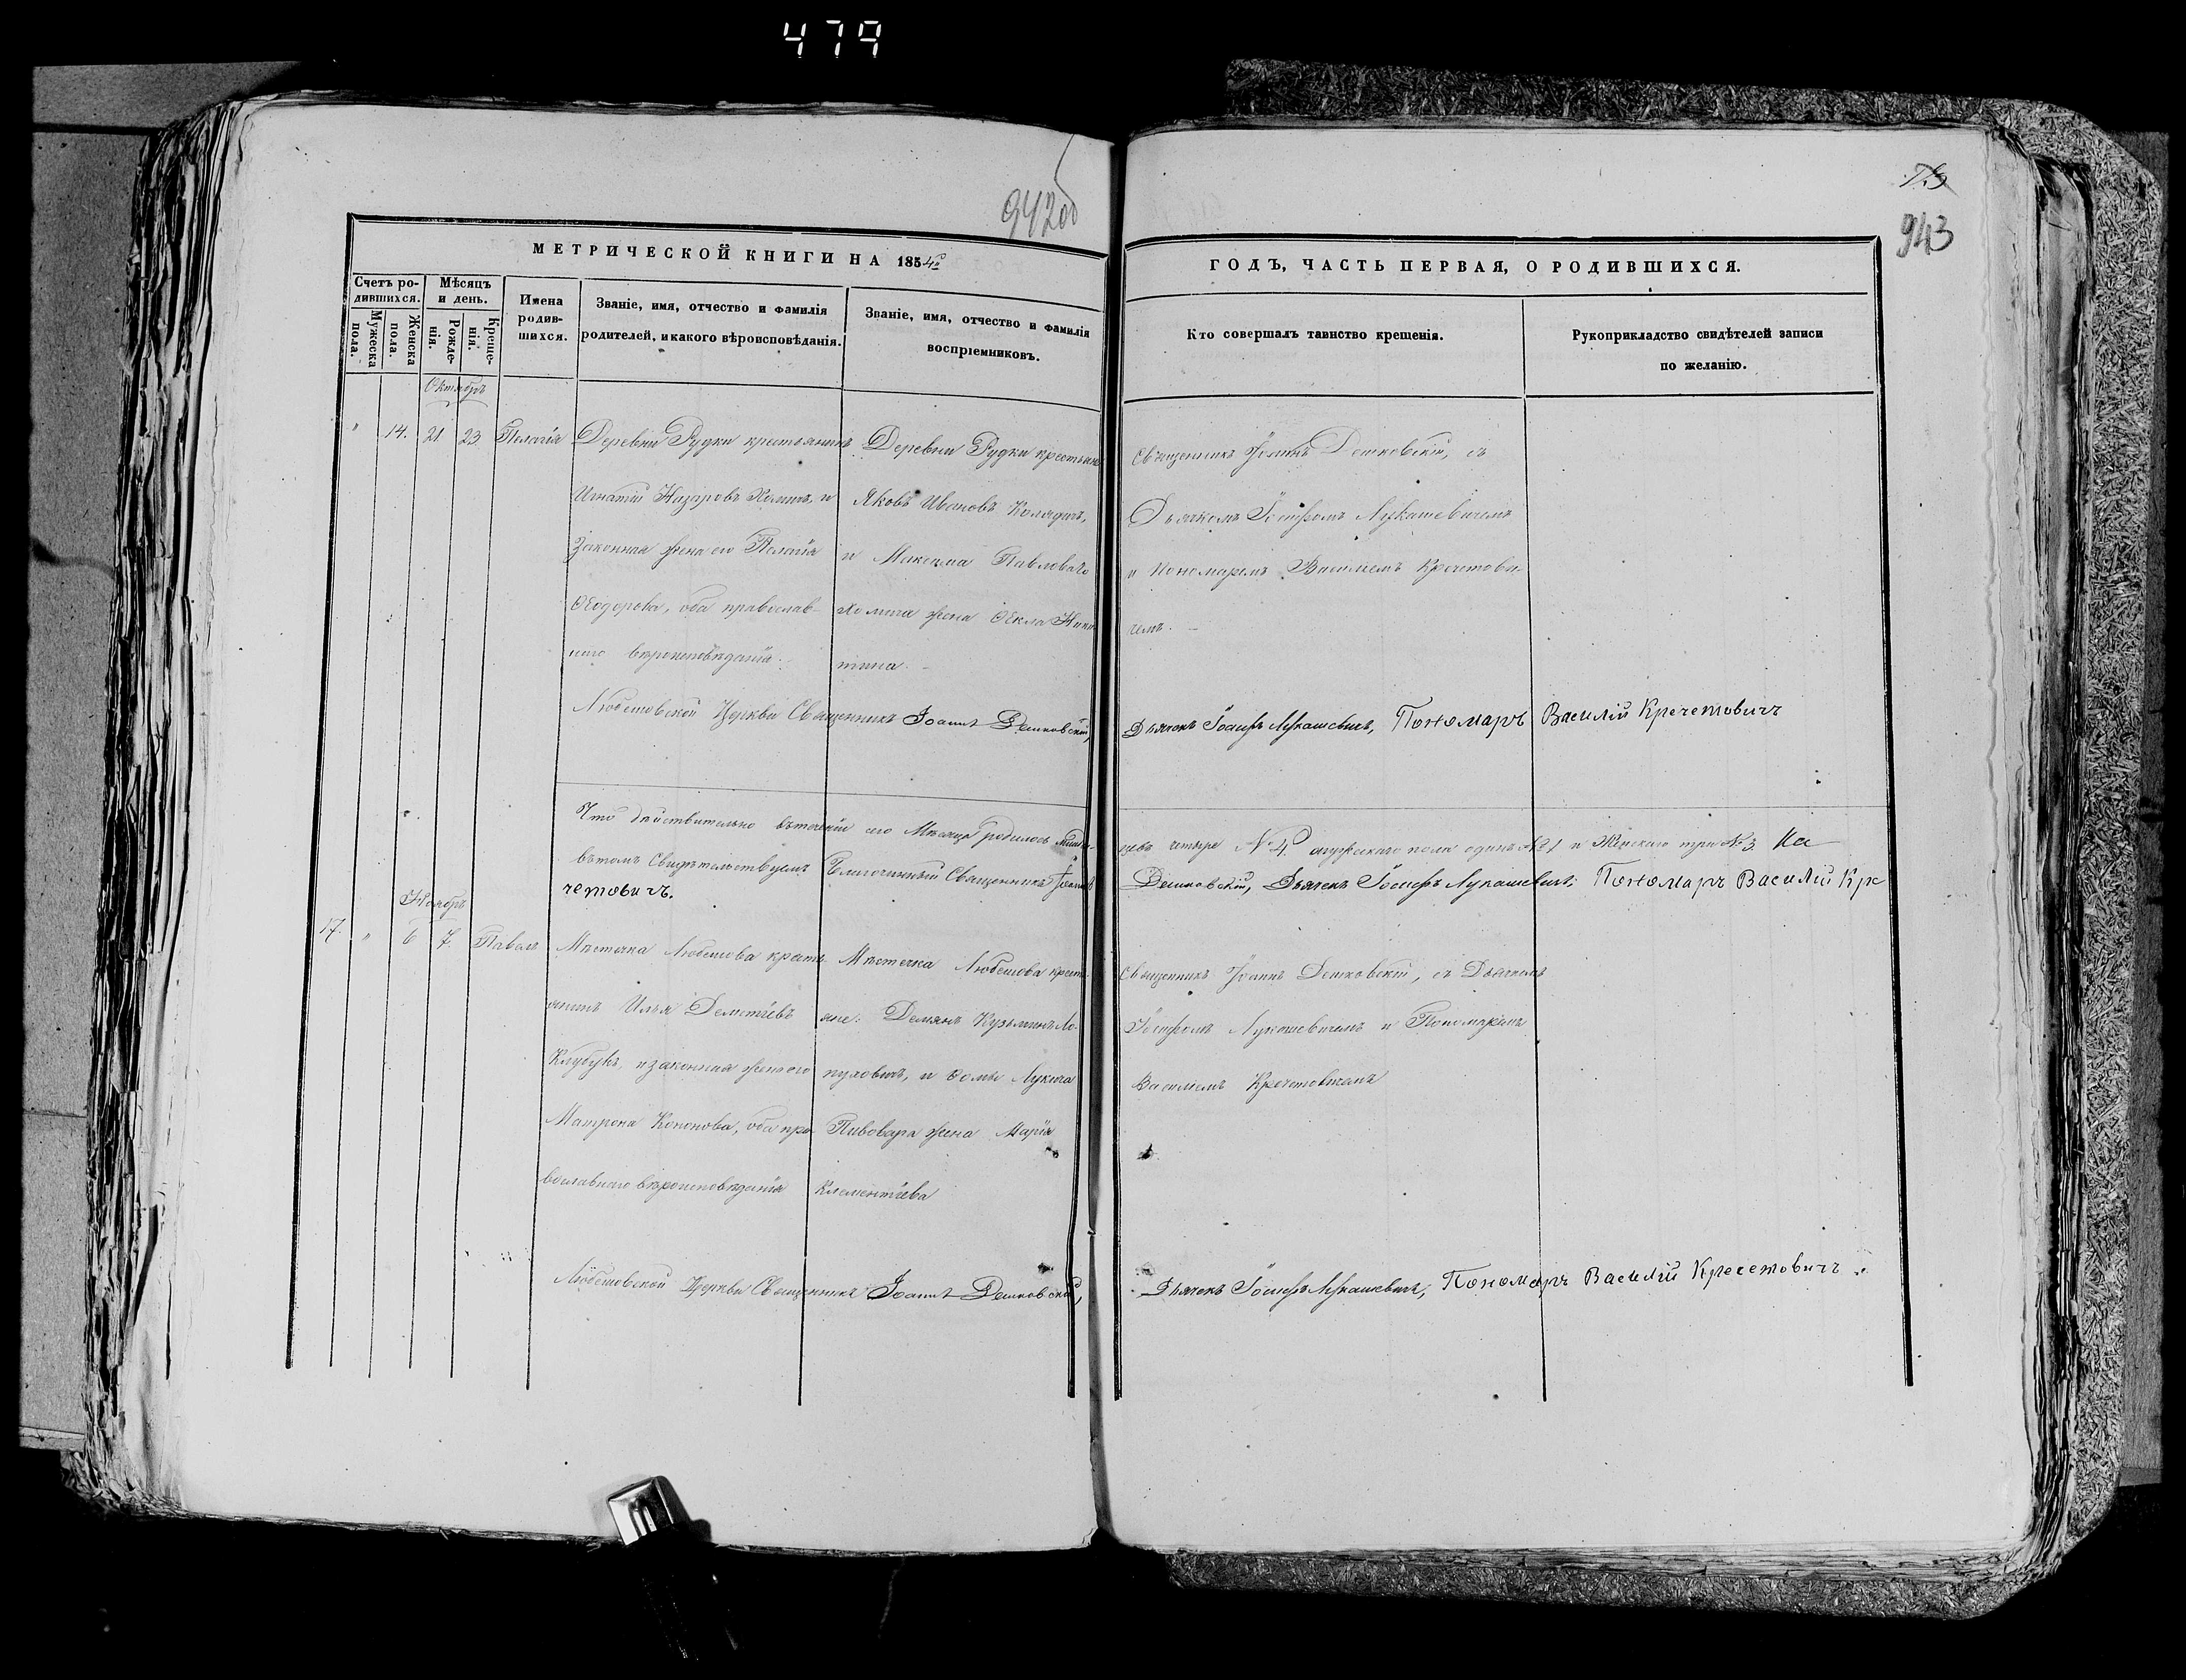 479
942об
73
943
МЕТРИЧЕСКОЙ КНИГИ НА 1854й
ГОДЪ, ЧАСТЬ ПЕРВАЯ, О РОДИВШИХСЯ.
Счетъ ро-
дившихся.
Мужеска пола.
Женска пола.
Мѣсяцъ
и день.
Рожде-
нія.
Креще-
нія.
Имена
родив-
шихся.
Званіе, имя, отчество и фамилія
родителей, и какого вѣроисповѣданія.
Званіе, имя, отчество и фамилія
воспріемниковъ.
Кто совершалъ таинство крещенія.
Рукоприкладство свидѣтелей записи
по желанію.
Октябрь
" 14. 21 23 Пелагія
Деревни Рудки крестьянинъ
Игнатій Назаровъ Хомичъ, и
Законная жена его Пелагія
Ѳеодорова, оба православ-
наго вѣроисповѣданія.
Деревни Рудки крестьян
Яковъ Ивановъ Колядичъ,
и Максима Павловаго
Хомича жена Ѳекла Ники
тина. –
Священникъ Іоаннъ Дешковскій, съ
Дьячкомъ Іосифомъ Лукашевичемъ
и Пономаремъ Василіемъ Кречетови-
чемъ. –
Любешовской Церкви Священникъ Іоаннъ Дешковскій,
Дьячекъ Іосифъ Лукашевичъ, Пономарь Василій Кречетовичъ
Что дѣйствительно въ теченіи сего Мѣсяца родилось Млад
цевъ четыре № 4. мужескаго пола одинъ № 1 и Женскаго три № 3. На
вѣтомъ Свидѣтельствуемъ Благочинный Священникъ Іоаннъ
Дешковскій, Дьячекъ Іосифъ Лукашевичъ; Пономарь Василій Кре
четовичъ.
Ноябрь
17. " 6 7. Павелъ
Мѣстечка Любешова кресть-
янинъ Илья Деметіевъ
Клубукъ, и законная жена его
Матрона Кононова, оба пра-
вославнаго вѣроисповѣданія
Мѣстечка Любешова кресть
яне: Демянъ Кузьминъ Ло-
пуховичъ, и Ѳомы Лукича
Пивовара жена Марія
Клементіева
Священникъ Іоаннъ Дешковскій, съ Дьячкомъ
Іосифомъ Лукашевичемъ и Пономаремъ
Василіемъ Кречетовичемъ
Любешовской Церкви Священникъ Іоаннъ Дешковскій,
Дьячекъ Іосифъ Лукашевичъ, Пономарь Василій Кречетовичъ